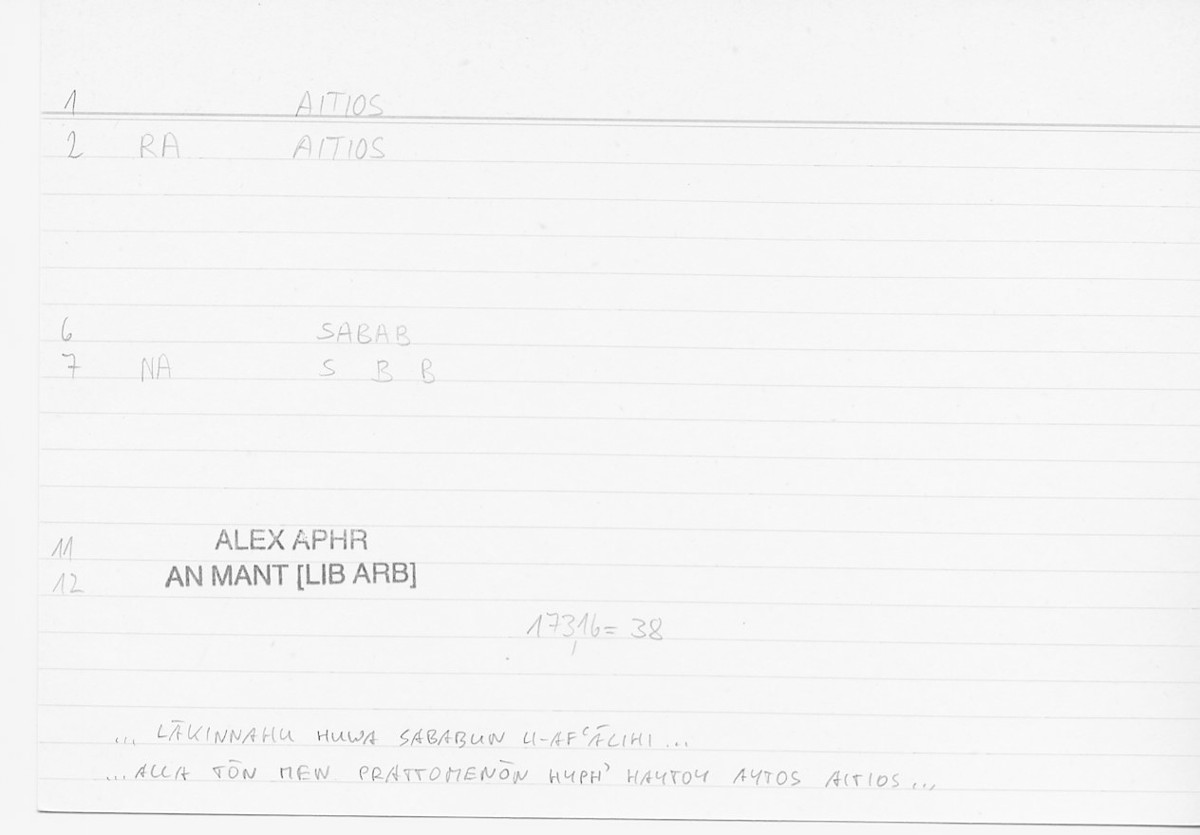 1 AITIOS
2 RA AITIOS
6 SABAB
7 NA S B B
11 ALEX APHR
12 AN MANT [LIB ARB]
173,16 = 38
... LĀKINNAHU HUWA SABABUN LI-AFʿĀLIHI ...
... ALLA TŌN MEN PRATTOMENŌN HYPH' HAYTOY AYTOS AITIOS ...